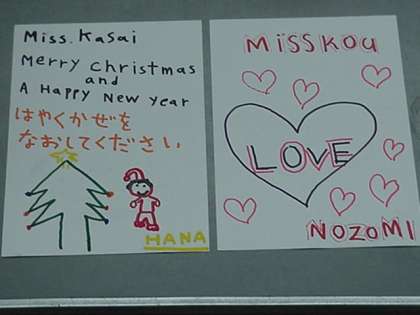 Miss. Kasai
Merry Christmas
and
A Happy New Year
はやくかぜを
なおしてください
HANA
MiSS KOU
LOVE
NOZOMI